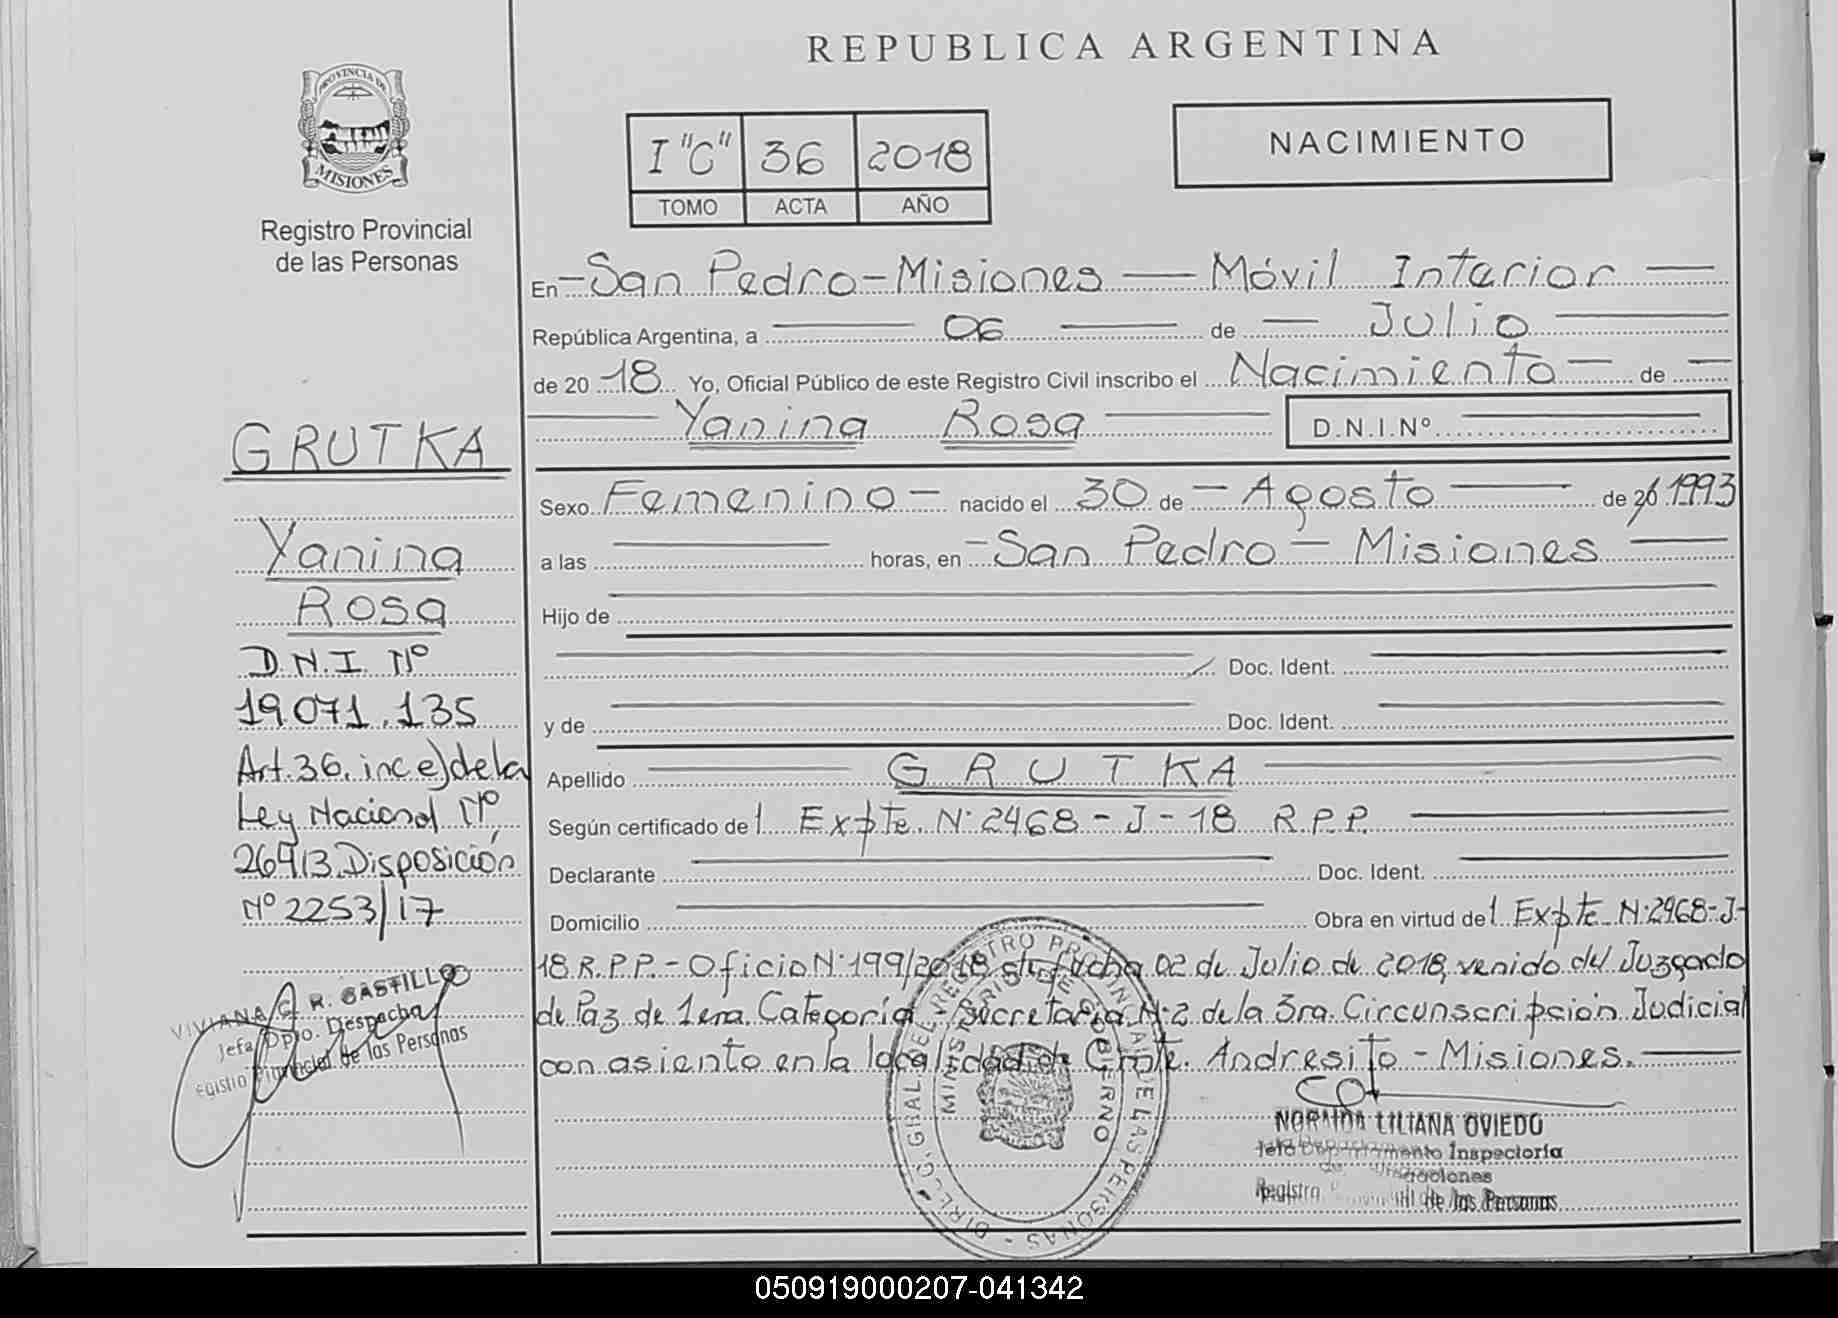 REPUBLICA ARGENTINA
PROVINCIA DE
MISIONES
Registro Provincial
de las Personas
I "C" 36 2018
TOMO ACTA AÑO
NACIMIENTO
En - San Pedro - Misiones — Móvil Interior —
República Argentina, a — 06 — de — Julio —
de 20 18 Yo, Oficial Público de este Registro Civil inscribo el Nacimiento — de —
— Yanina Rosa — D.N.I.Nº —
Sexo Femenino — nacido el 30 de — Agosto — de 20 1993
a las — horas, en - San Pedro — Misiones —
Hijo de —
— Doc. Ident. —
y de — Doc. Ident. —
Apellido — GRUTKA —
Según certificado de 1 Expte. Nº 2468 - J - 18 R.P.P. —
Declarante — Doc. Ident. —
Domicilio — Obra en virtud de 1 Expte. Nº 2468-J-
18 R.P.P. - Oficio Nº 199/2018 de fecha 02 de Julio de 2018, venido del Juzgado
de Paz de 1era. Categoría - Secretaría Nº 2 de la 3ra. Circunscripción Judicial
con asiento en la localidad de Cmte. Andresito - Misiones. —
GRUTKA
Yanina
Rosa
D.N.I. Nº
19.071.135
Art. 36. inc e) de la
Ley Nacional Nº
26413. Disposición
Nº 2253/17
VIVIANA C. R. CASTILLO
Jefa Dpto. Despacho
Registro Provincial de las Personas
DIREC. GRAL. DEL REGISTRO PROVINCIAL DE LAS PERSONAS
MINISTERIO DE GOBIERNO
NORMIDA LILIANA OVIEDO
Jefa Departamento Inspectoria
Registro Provincial de las Personas
050919000207-041342